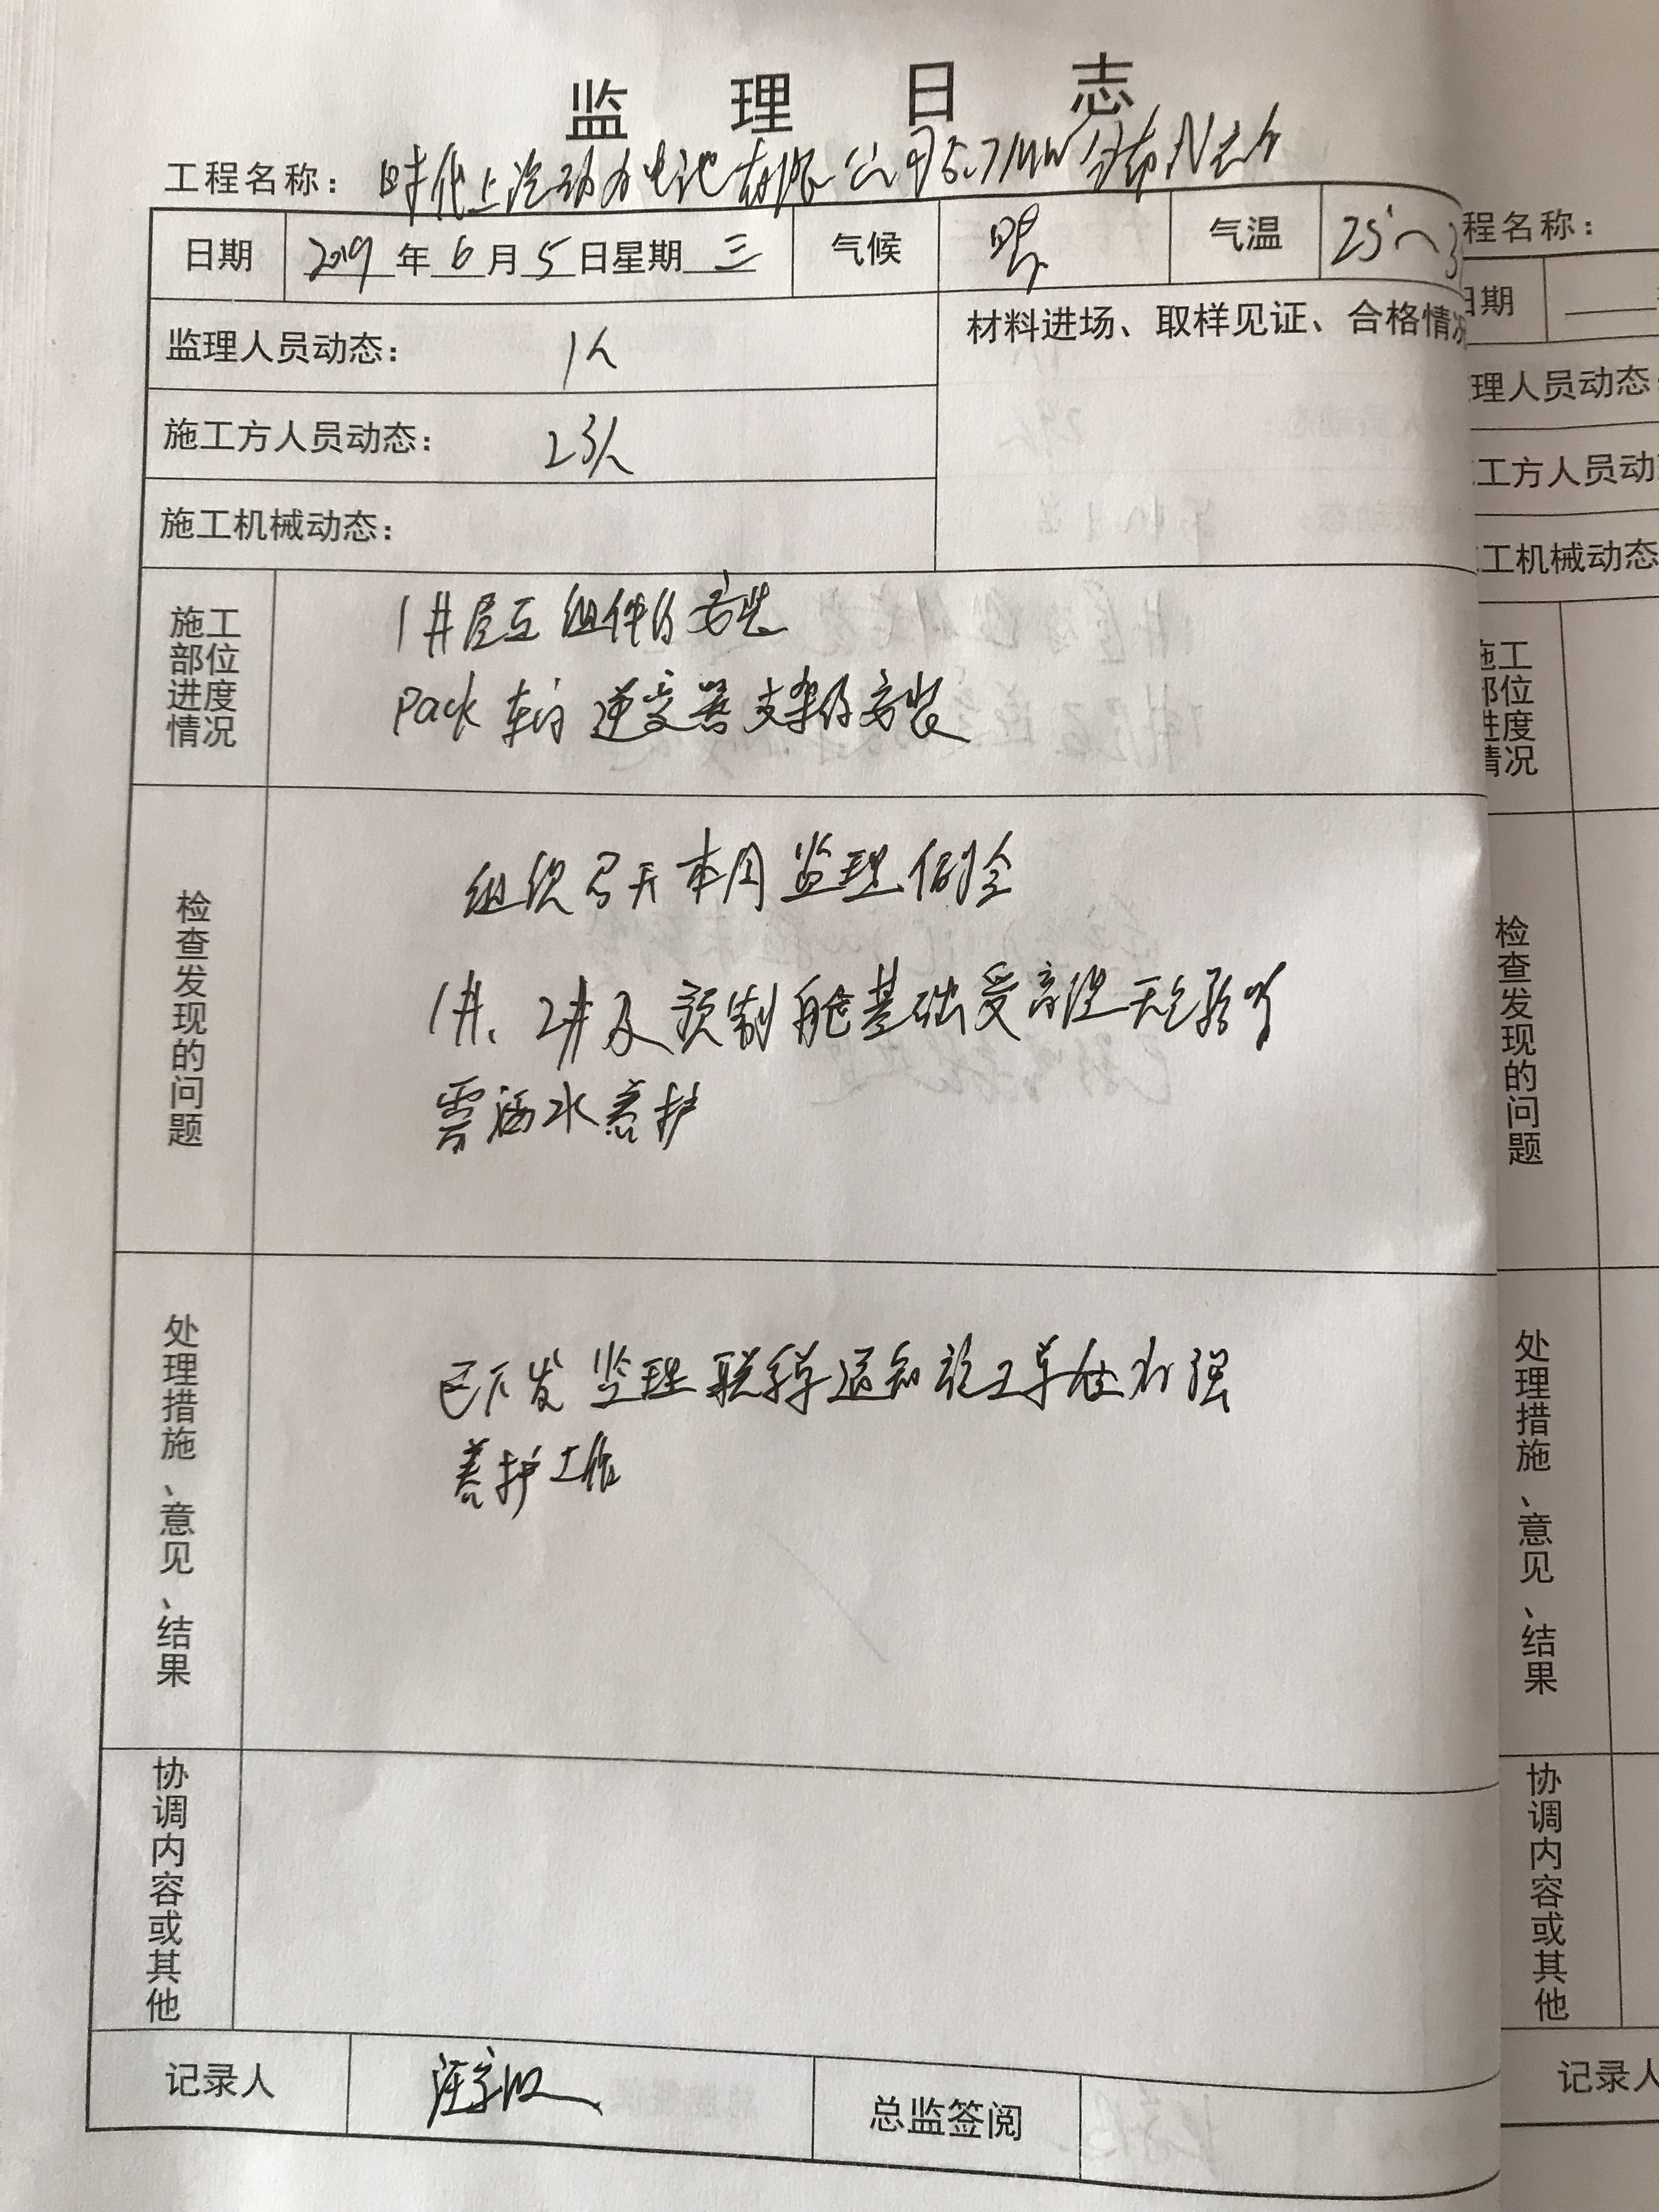 监 理 日 志
工程名称: 时代上汽动力电池有限公司5.7MW分布
日期 2019年6月5日星期三 气候 气温 25~3
监理人员动态: 1人 材料进场、取样见证、合格情况
施工方人员动态: 23人
施工机械动态:
施工部位进度情况
1#屋面组件的安装
Pack车间逆变器支架的安装
检查发现的问题
组织召开本周监理例会
1#、2#及预制舱基础受高温天气影响
需洒水养护
处理措施、意见、结果
已下发监理联系单通知施工单位加强
养护工作
协调内容或其他
记录人 总监签阅
程名称:
日期
理人员动态
工方人员动
工机械动态
施工部位进度情况
检查发现的问题
处理措施、意见、结果
协调内容或其他
记录人